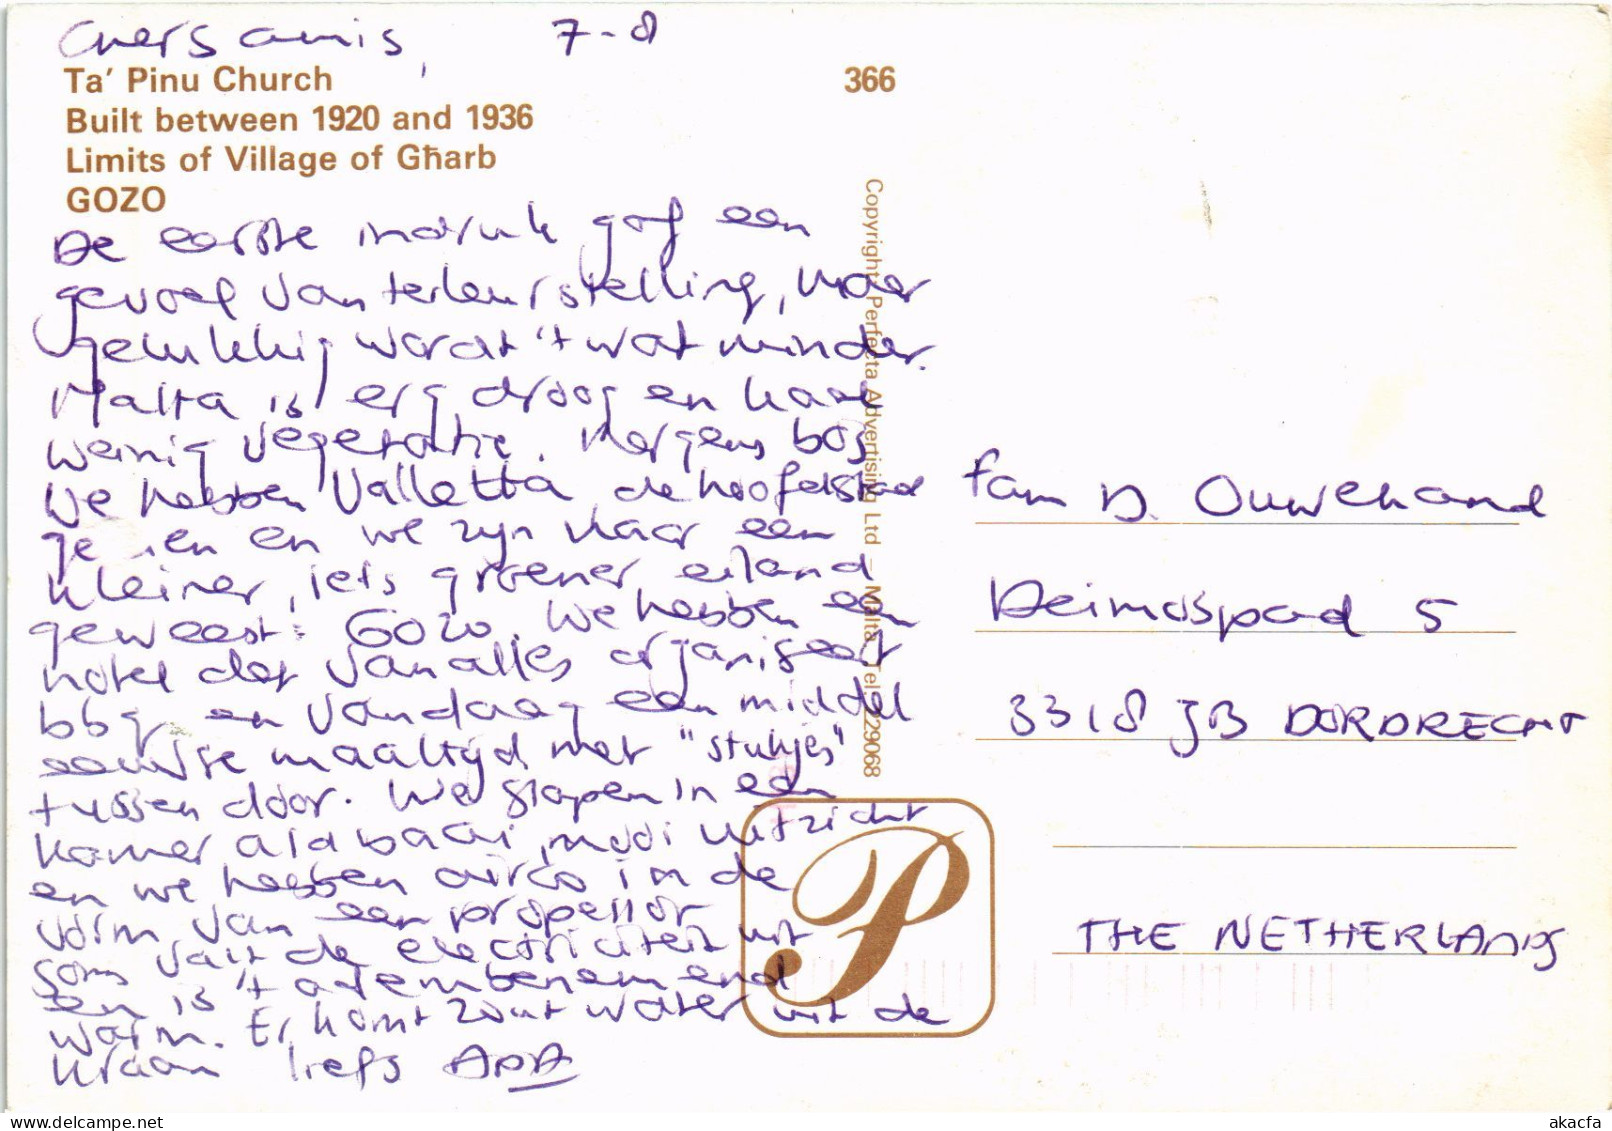 7-8
Ta' Pinu Church
Built between 1920 and 1936
Limits of Village of Għarb
GOZO
366
De eerste indruk gaf een
gevoel van terleurstelling, maar
gelukkig wordt 't wat minder.
Malta is erg droog en kaal
weinig vegetatie. Nergens bos
We hebben Valletta de hoofdstad
en en we zijn naar een
kleiner, iets groener eiland
geweest: Gozo. We hebben een
hotel dat van alles organiseert
bbq en vandaag een middel
eeuwse maaltijd met "stukjes"
tussen door. We slapen in een
kamer a/d baai, mooi uitzicht
en we hebben airco in de
vorm van een propellor
soms valt de electriciteit uit
en is 't adembenemend
warm. Er komt zout water uit de
kraan liefs ADA
Copyright Perfecta Advertising Ltd – Malta Tel 229068
fam D. Ouwehand
Deimospad 5
3318 JB DORDRECHT
THE NETHERLANDS
P
www.delcampe.net
akacfa